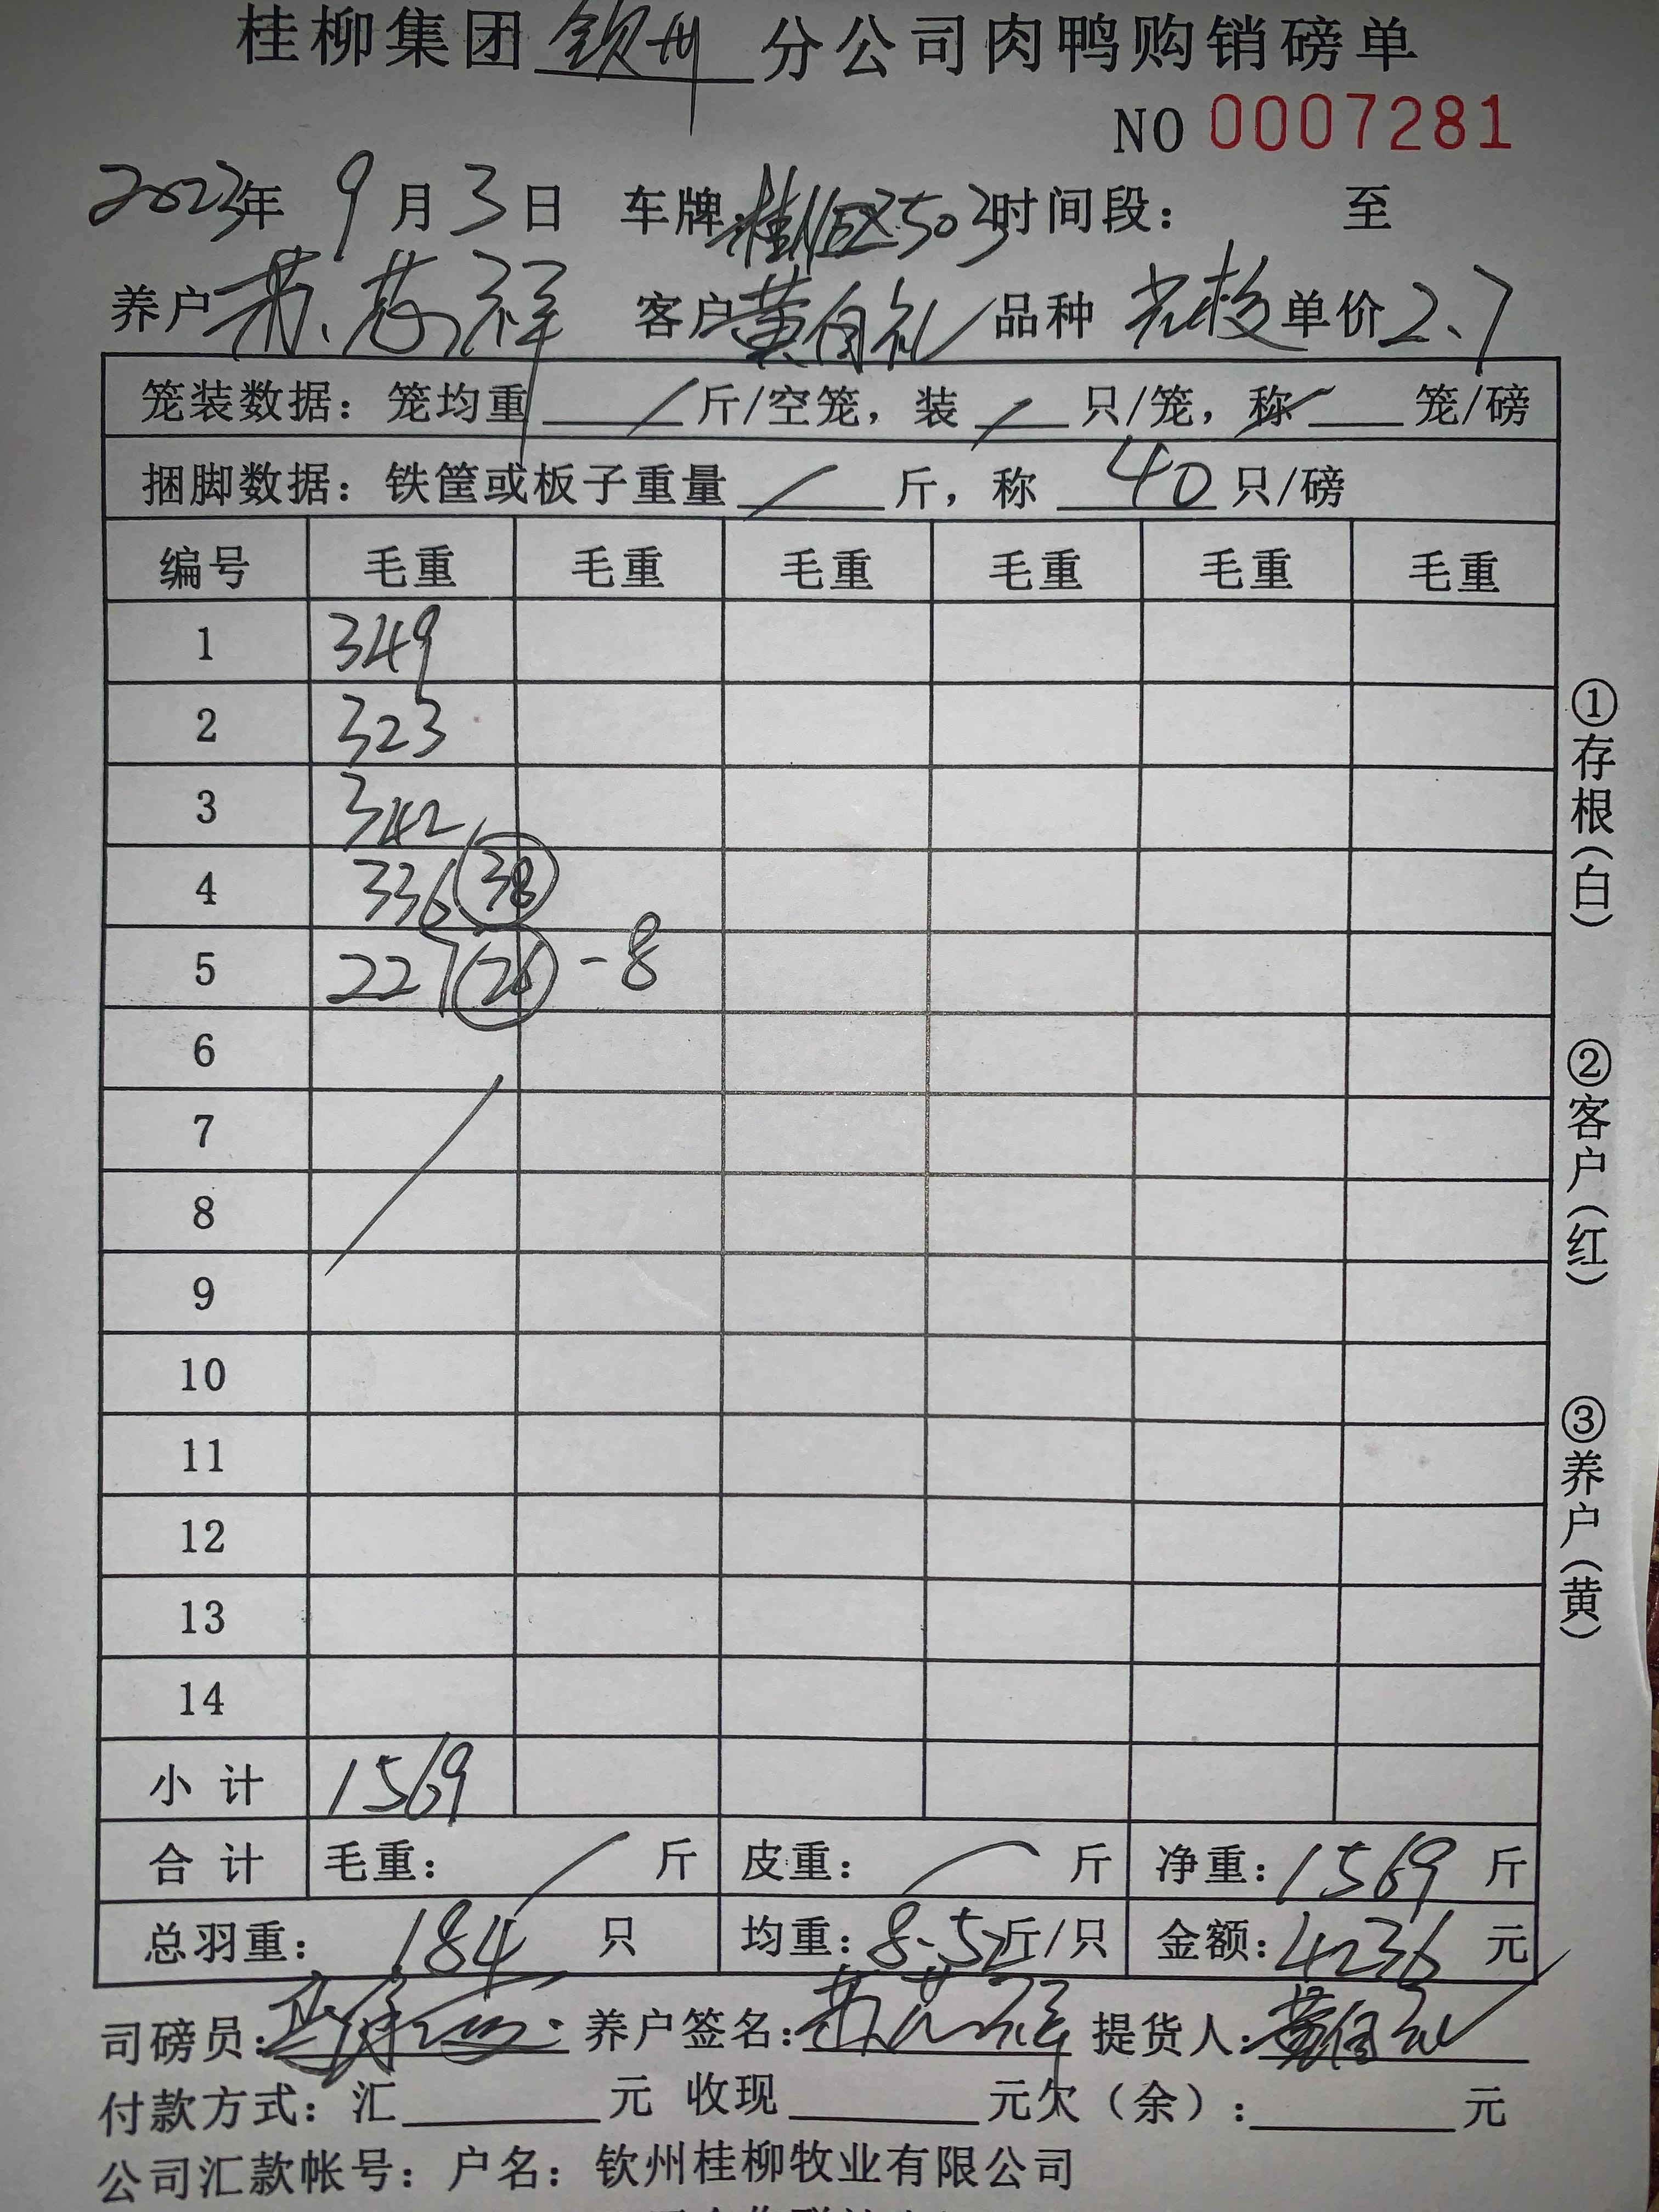 桂柳集团钦州分公司肉鸭购销磅单
NO 0007281
2023年 9月3日 车牌:桂 503 时间段: 至
养户 祥 客户 黄自礼 品种 单价 2.7
笼装数据: 笼均重 / 斤/空笼, 装 / 只/笼, 称 / 笼/磅
捆脚数据: 铁筐或板子重量 / 斤, 称 40 只/磅
编号 毛重 毛重 毛重 毛重 毛重 毛重
1 349
2 323
3 342
4 336 38
5 227 26 -8
6
7
8
9
10
11
12
13
14
小计 1569
合计 毛重: / 斤 皮重: / 斤 净重: 1569 斤
总羽重: 184 只 均重: 8.52斤/只 金额: 4236 元
司磅员: 养户签名: 祥 提货人: 黄自礼
付款方式: 汇 元 收现 元欠(余): 元
公司汇款帐号: 户名: 钦州桂柳牧业有限公司
①存根(白)
②客户(红)
③养户(黄)